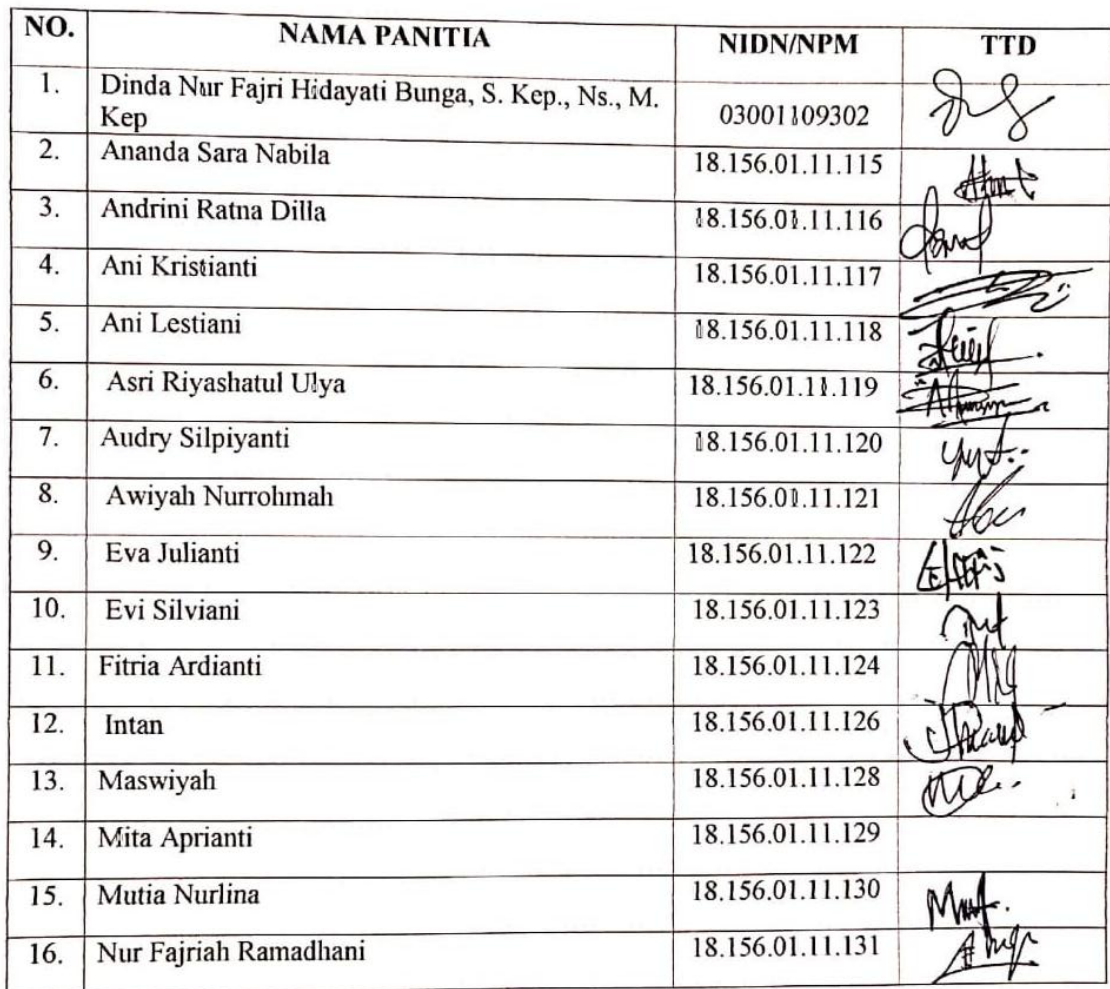 NO. NAMA PANITIA NIDN/NPM TTD
1. Dinda Nur Fajri Hidayati Bunga, S. Kep., Ns., M.
Kep 03001109302
2. Ananda Sara Nabila 18.156.01.11.115
3. Andrini Ratna Dilla 18.156.01.11.116
4. Ani Kristianti 18.156.01.11.117
5. Ani Lestiani 18.156.01.11.118
6. Asri Riyashatul Ulya 18.156.01.11.119
7. Audry Silpiyanti 18.156.01.11.120
8. Awiyah Nurrohmah 18.156.01.11.121
9. Eva Julianti 18.156.01.11.122
10. Evi Silviani 18.156.01.11.123
11. Fitria Ardianti 18.156.01.11.124
12. Intan 18.156.01.11.126
13. Maswiyah 18.156.01.11.128
14. Mita Aprianti 18.156.01.11.129
15. Mutia Nurlina 18.156.01.11.130
16. Nur Fajriah Ramadhani 18.156.01.11.131